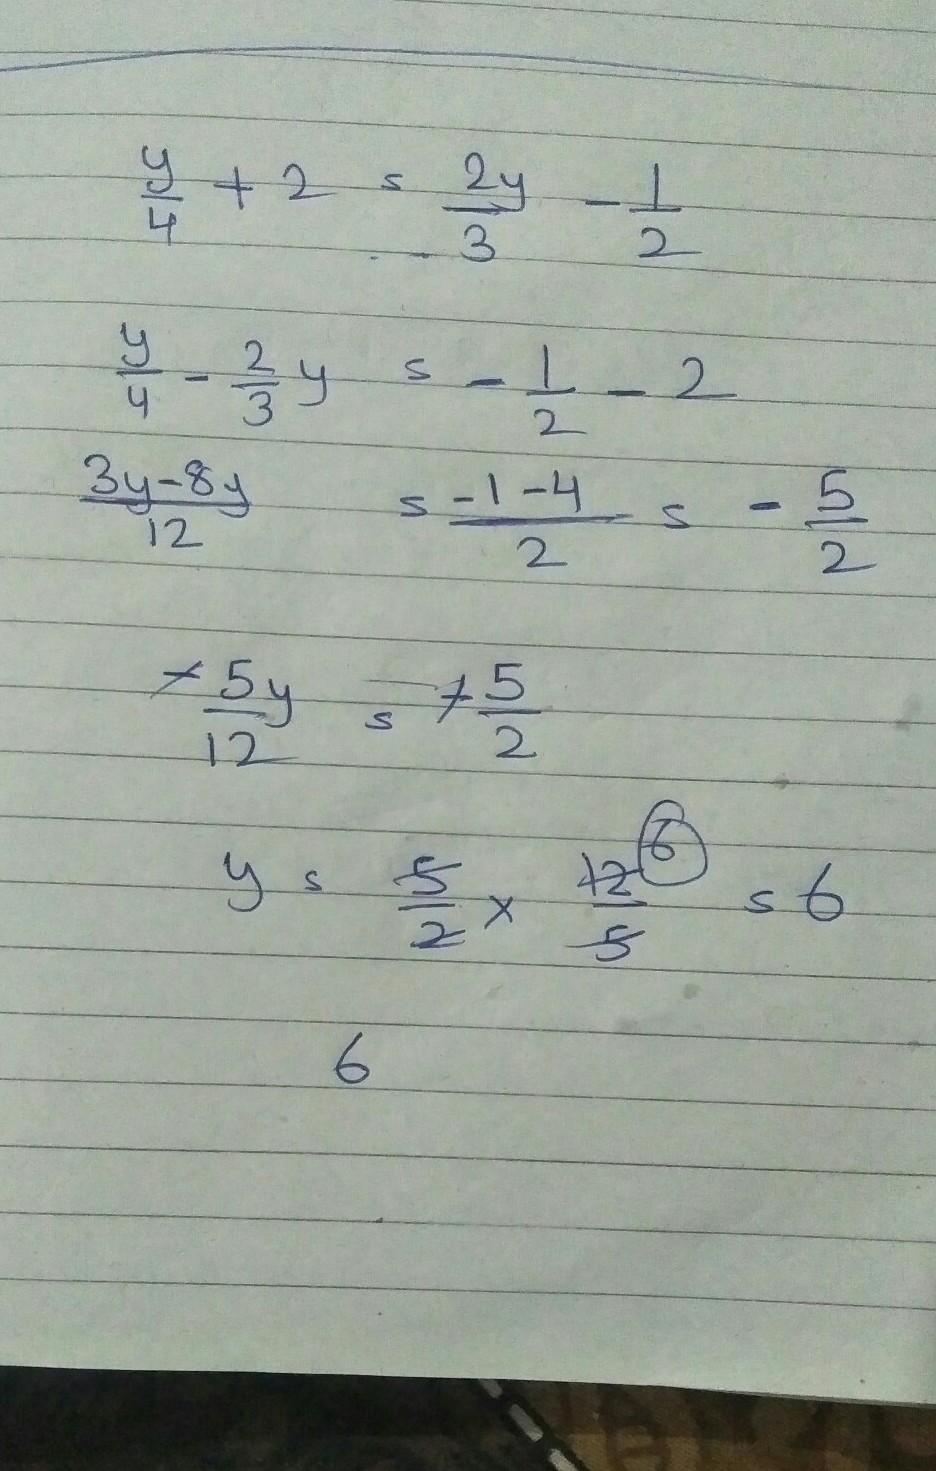 y/4 + 2 = 2y/3 - 1/2
y/4 - 2/3 y = - 1/2 - 2
3y-8y/12 = -1-4/2 = - 5/2
- 5y/12 = - 5/2
y = 5/2 × 12/5 6 = 6
6